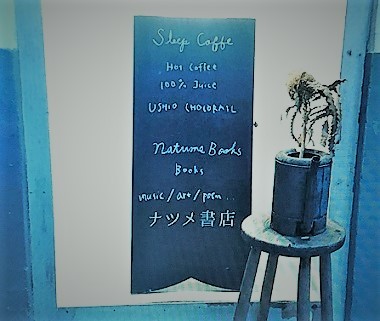 Sleep Coffe
Hot Coffee
100% Juice
USHIO CHOCOLATL
Natsume Books
Books
music / art / poem ...
ナツメ書店